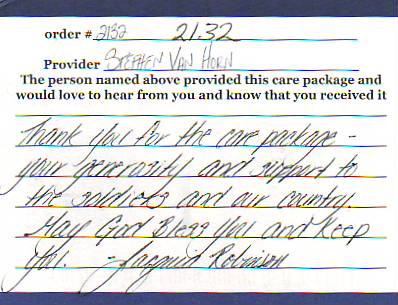 order # 2132 2132
Provider STEPHEN VAN HORN
The person named above provided this care package and
would love to hear from you and know that you received it
Thank you for the care package -
your generosity and support to
the soldiers and our country.
May God Bless You and Keep
You. - Jacquin Robinson